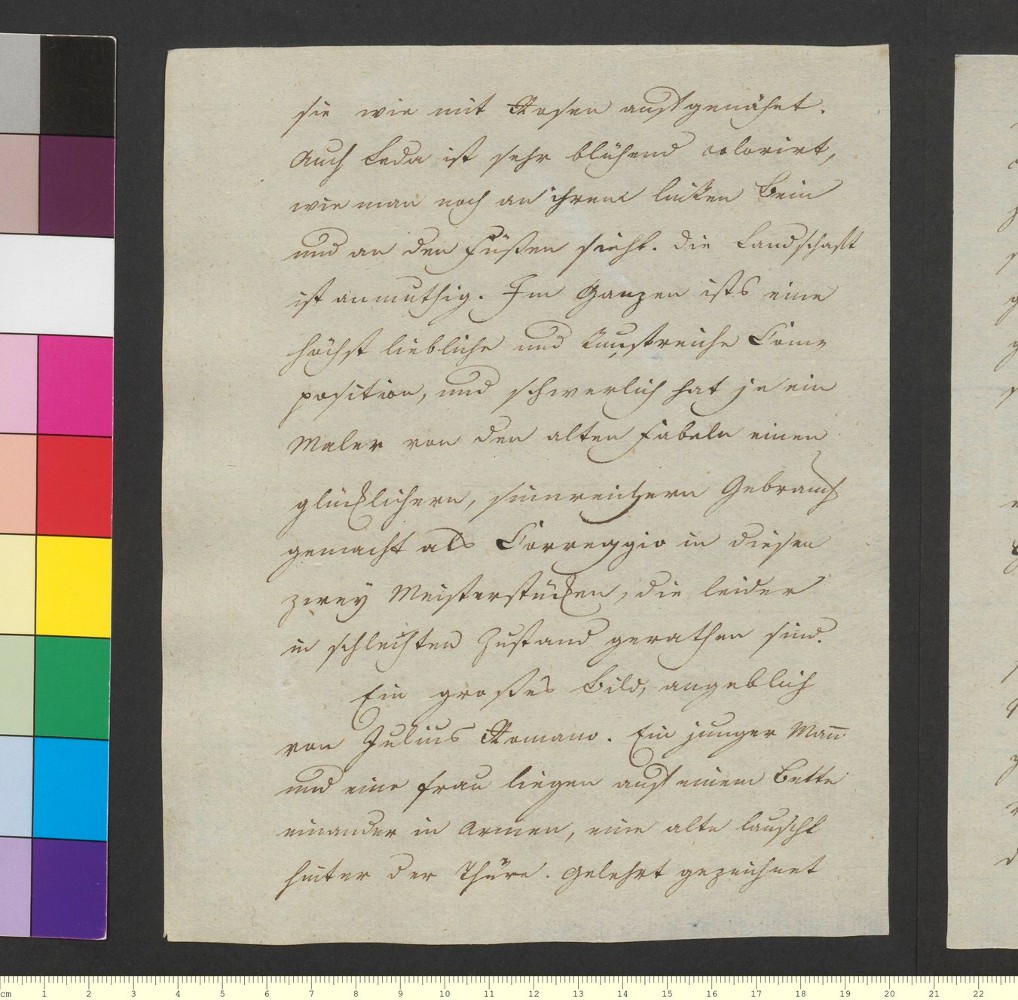 sie wie mit Rosen ausgenähet.
Auch Leda ist sehr blühend colorirt,
wie man noch an ihrem linken Bein
und an den Füßen sieht. Die Landschaft
ist anmuthig. Im Ganzen ists eine
höchst liebliche und kunstreiche Com-
position, und schwerlich hat je ein
Maler von den alten Fabeln einen
glücklichern, sinnreichern Gebrauch
gemacht als Correggio in diesen
zwey Meisterstücken, die leider
in schlechten Zustand gerathen sind.
Ein großes Bild, angeblich
von Julius Romano. Ein junger Mañ
und eine Frau liegen auf einem Bette
einander in Armen, eine alte lauscht
hinter der Thüre. Gelehrt gezeichnet